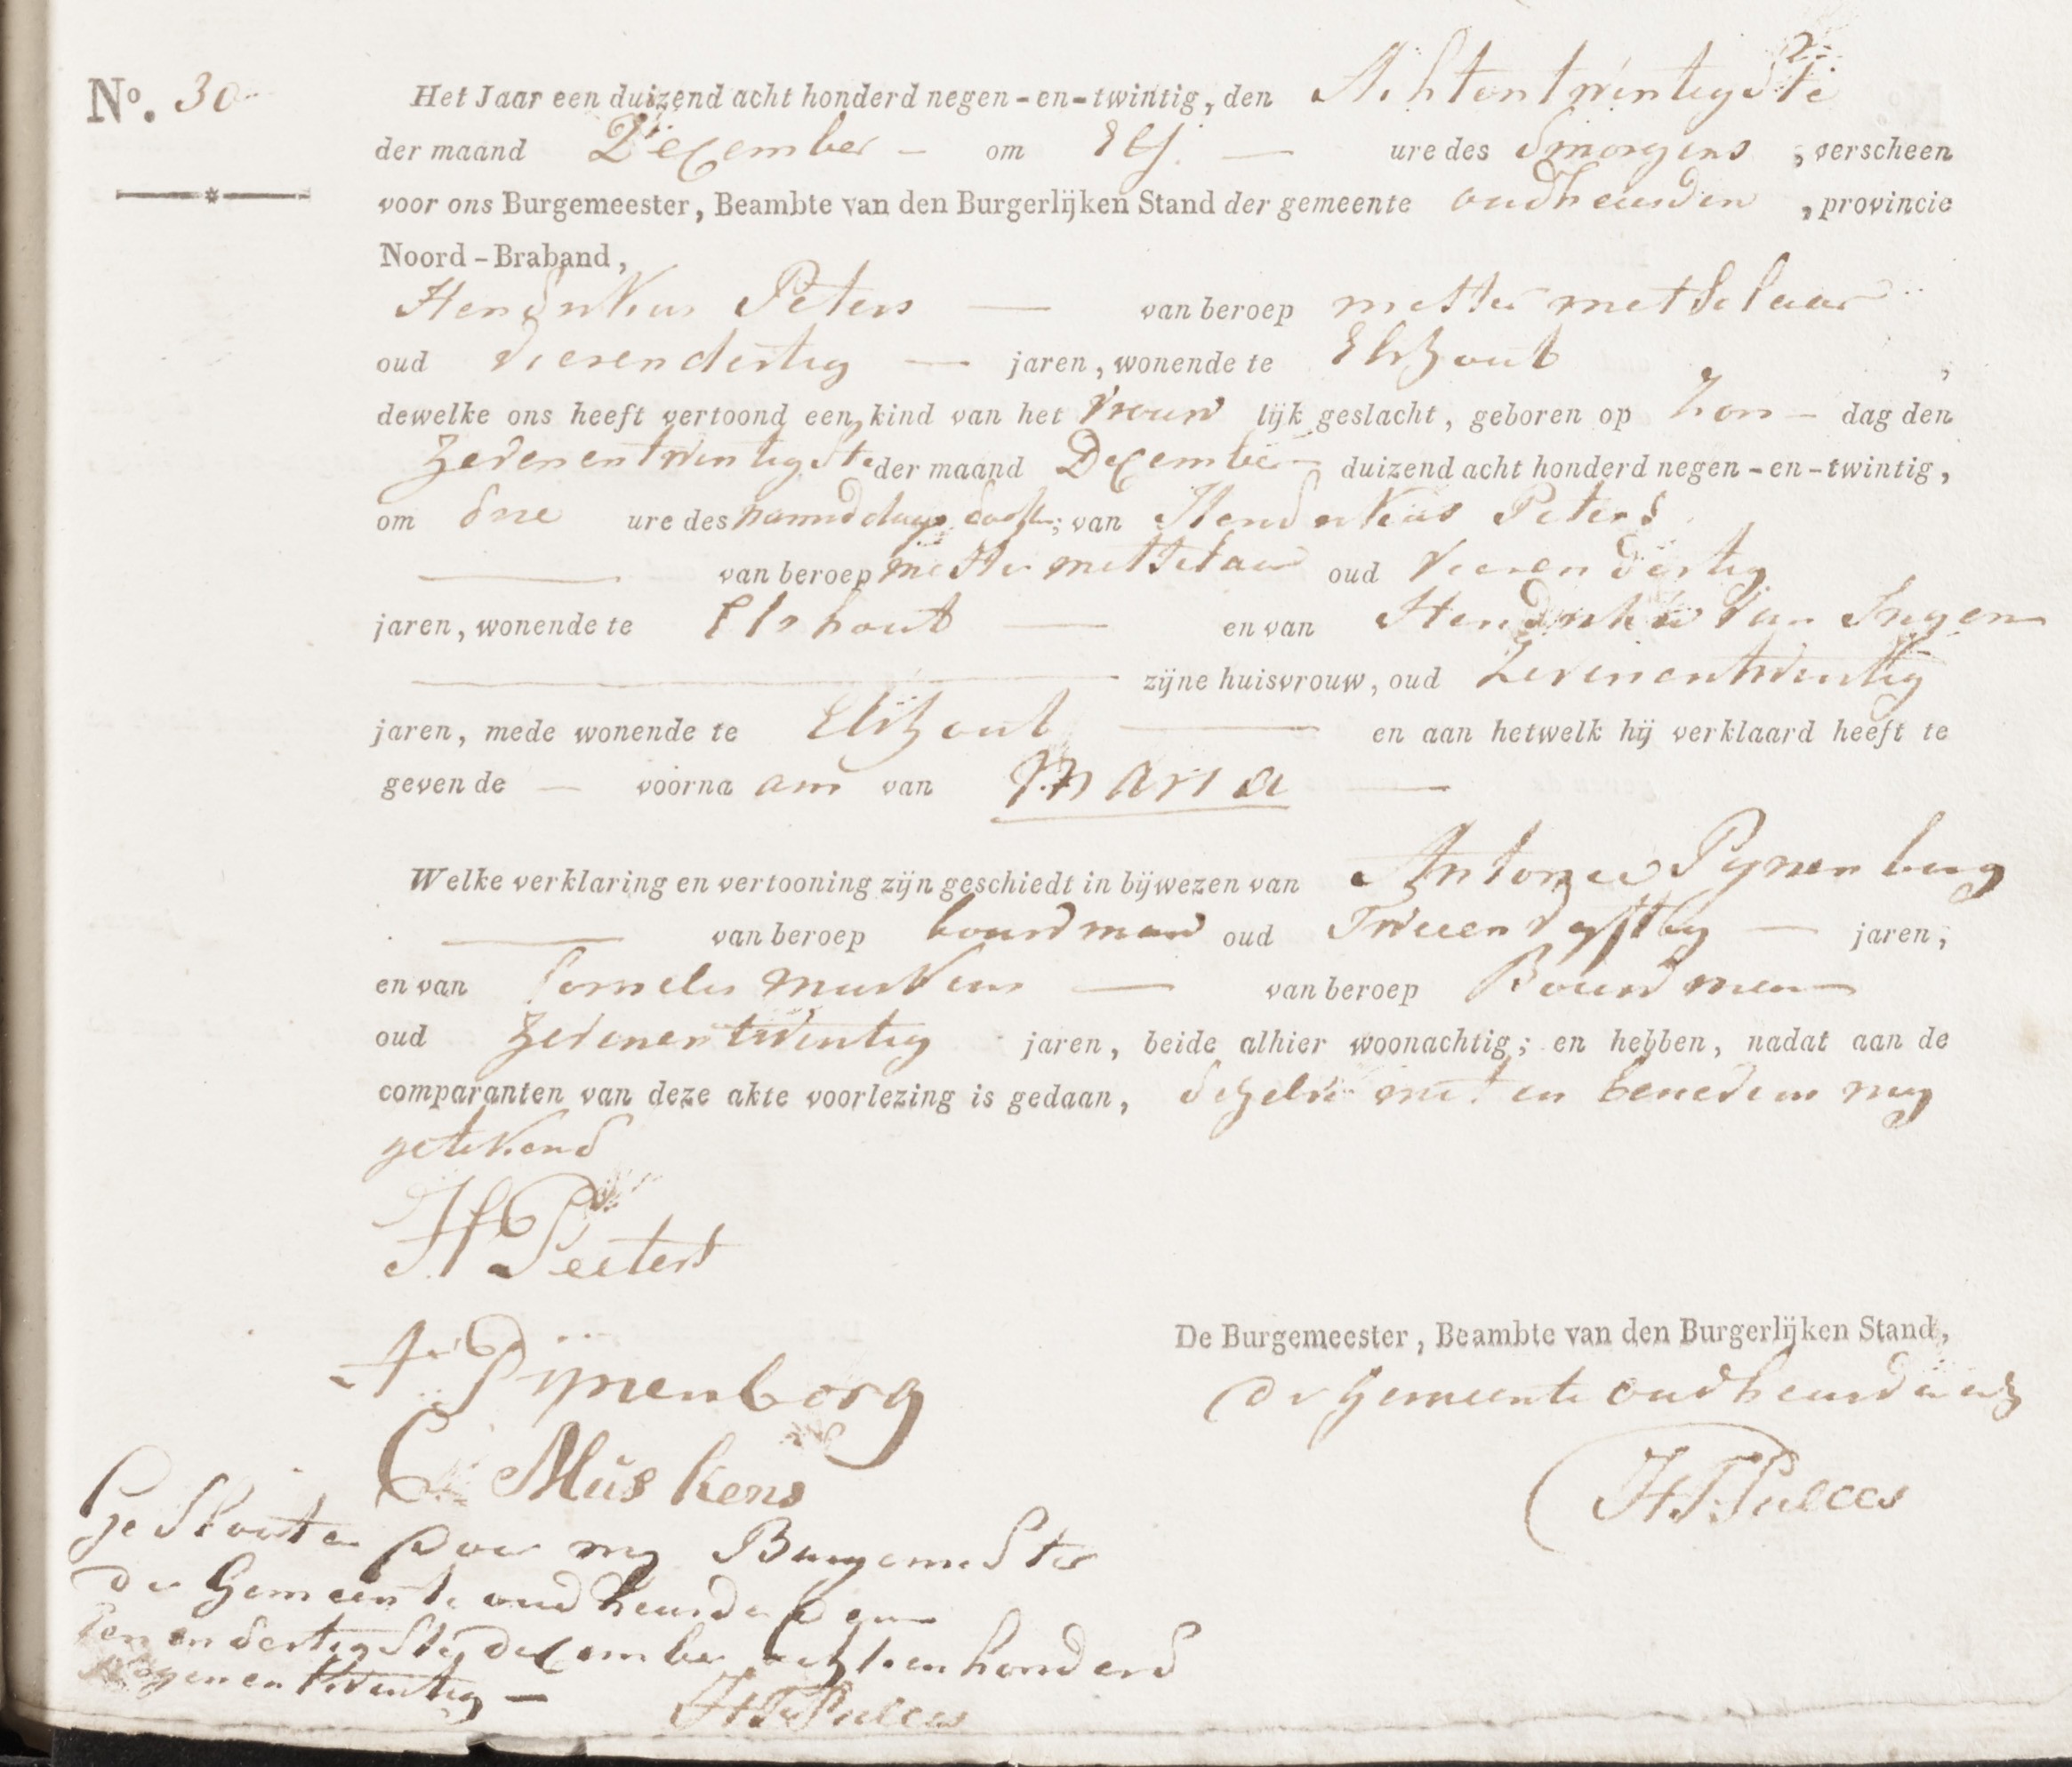 No. 30
Het Jaar een duizend acht honderd negen-en-twintig, den Achtentwintigste
der maand December - om Elf - ure des smorgens, verscheen
voor ons Burgemeester, Beambte van den Burgerlijken Stand der gemeente oudheusden, provincie
Noord-Braband,
Hendrikus Peters - van beroep metser metselaar
oud vierendertig - jaren, wonende te Elshout,
dewelke ons heeft vertoond een kind van het vrouw lijk geslacht, geboren op Zon - dag den
Zevenentwintigste der maand December - duizend acht honderd negen-en-twintig,
om drie ure des namiddags; van Hendrikus Peters
van beroep metser metselaar oud vierendertig
jaren, wonende te Elshout - en van Hendrika van Ingen
zijne huisvrouw, oud Zevenentwintig
jaren, mede wonende te Elshout - en aan hetwelk hij verklaard heeft te
geven de - voorna am van Maria -
Welke verklaring en vertooning zijn geschiedt in bijwezen van Antonie Pynenburg
van beroep bouwman oud Tweenvyftig - jaren,
en van Cornelis Muskens - van beroep Bouwman
oud Zevenentwintig jaren, beide alhier woonachtig; en hebben, nadat aan de
comparanten van deze akte voorlezing is gedaan, dezelve met en benevens my
getekend
H Peeters
A Pijnenborg
De Burgemeester, Beambte van den Burgerlijken Stand,
der gemeente oudheusden
C Muskens
Geslooten door my Burgemester
der Gemeente oudheusden
Eenendertigste december achtienhonderd
Negenentwintig -